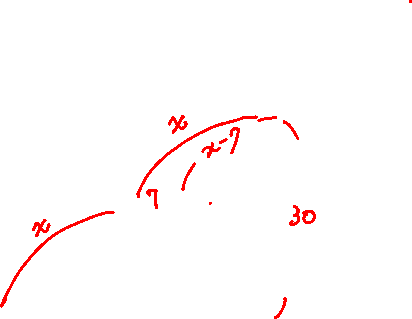 x
x-7
7
x
30